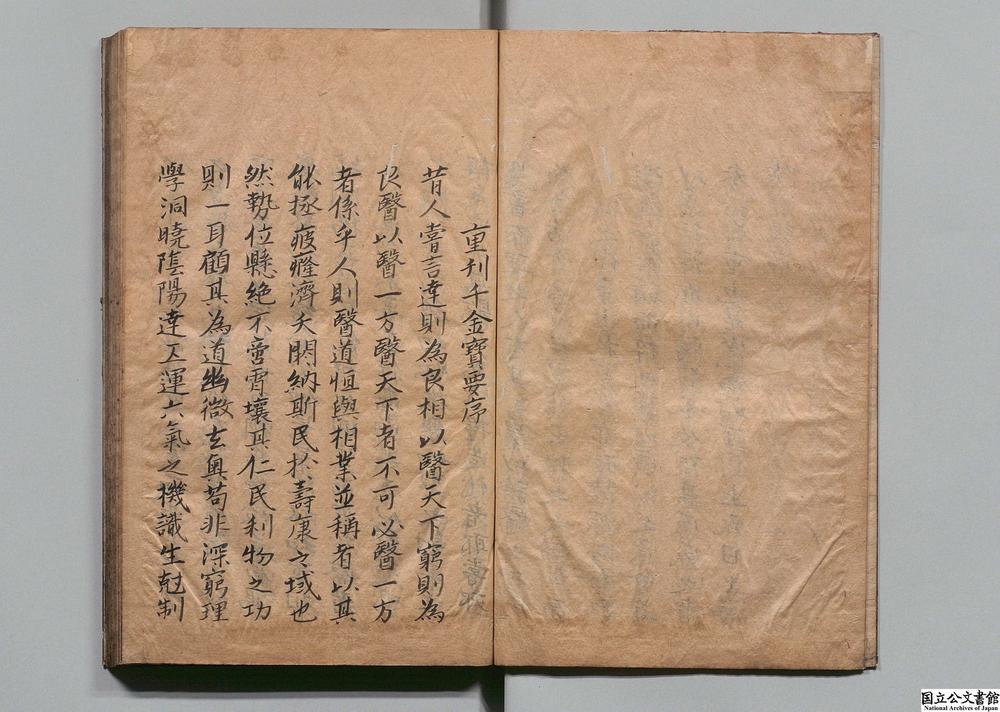 重刊千金寶要序
昔人嘗言達則為良相以醫天下窮則為
良醫以醫一方醫天下者不可必醫一方
者係乎人則醫道恒與相業並稱者以其
能拯疲癃濟夭閼納斯民於壽康之域也
然勢位懸絕不啻霄壤其仁民利物之功
則一耳顧其為道幽微玄奧苟非深窮理
學洞曉陰陽達五運六氣之機識生尅制
国立公文書館
National Archives of Japan